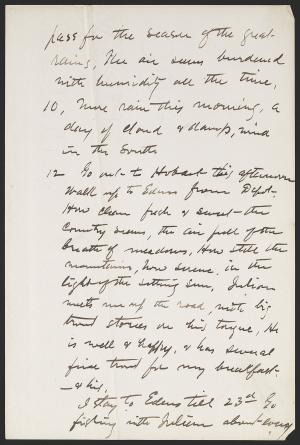 pass for the season of the great
rains, The air seems burdened
with humidity all the time,
10, More rain this morning, a
day of cloud & damp, wind
in the South
12 Go out to Hobart this afternoon
Walk up to Edens from Depot.
How clean fresh & sweet the
Country seems, the air full of the
breath of meadows, How still the
mountains, how serene, in the
light of the setting sun, Julian
meets me up the road, with big
trout stories on his tongue, He
is well & happy, & has several
fine trout for my breakfast
& his,
I stay to Edens till 23rd Go
fishing with Julian about every